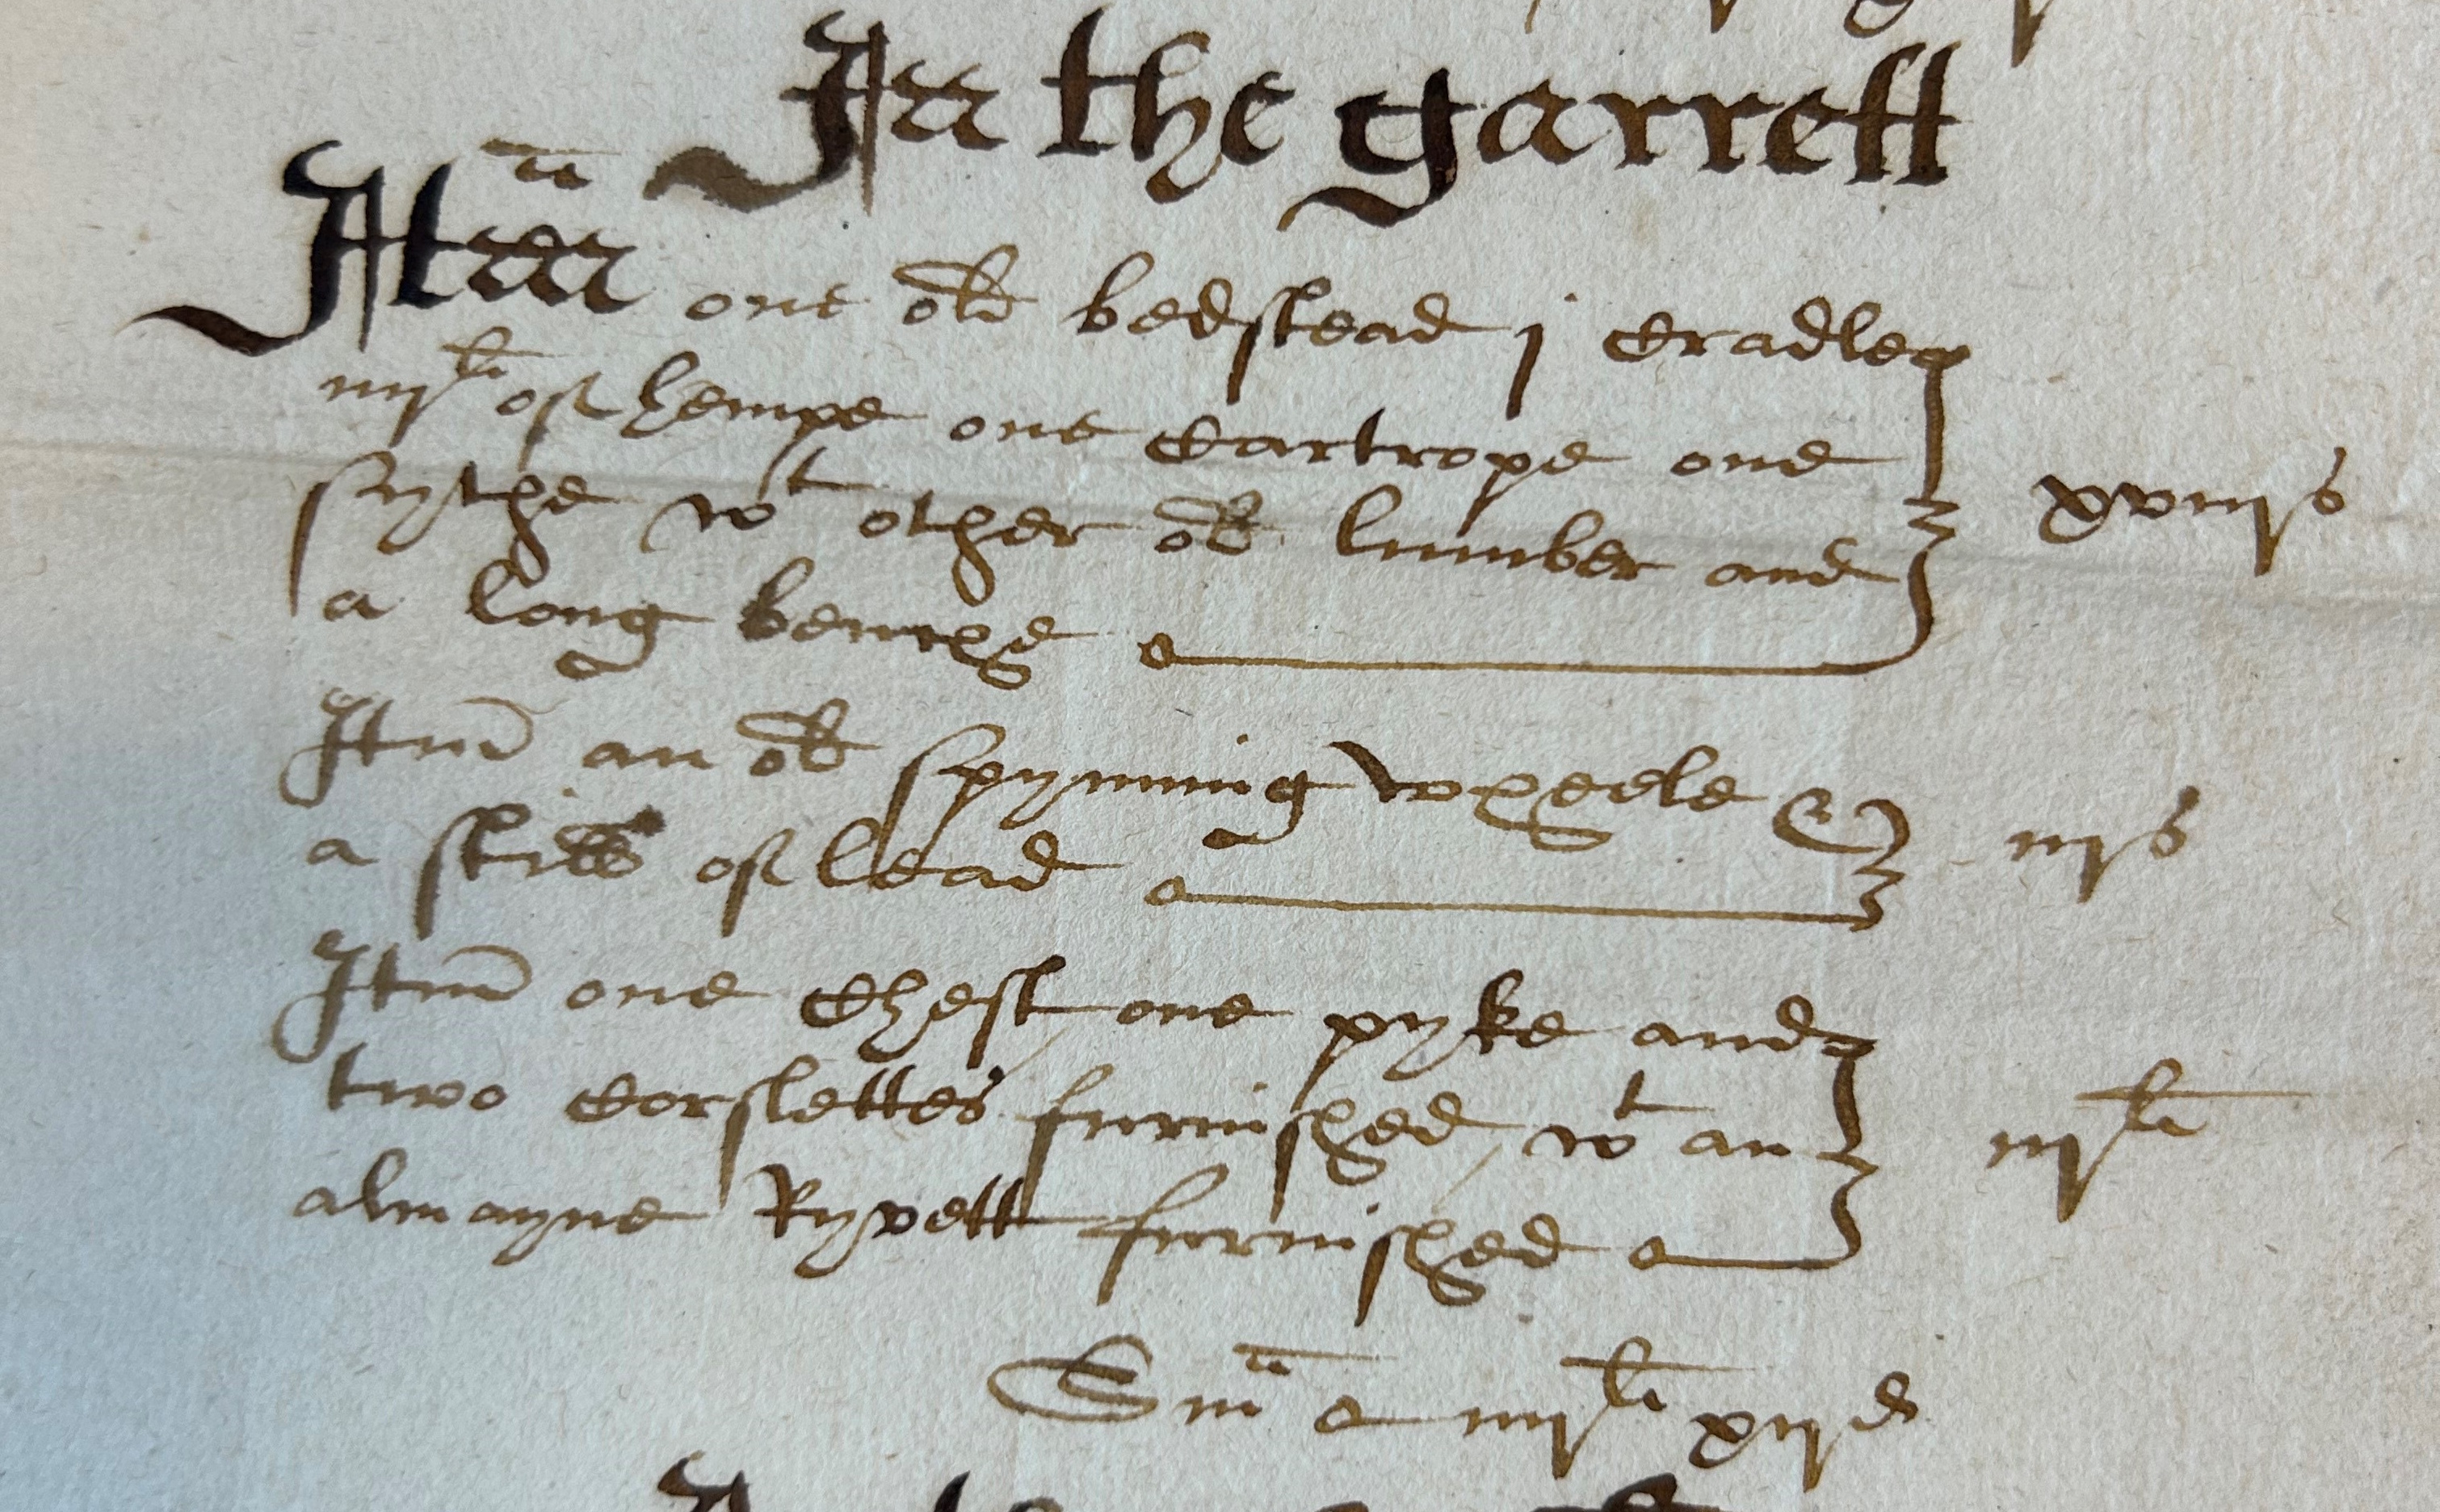 In the garrett
Itm̄ one old bedstead j cradle
iiij li of hempe one cartrope one
sythe wt other old lumber and
a long benche
xviij s
Itm̄ an old spynning wheele &
a still of lead
iij s
Itm̄ one chest, one pyke and
two corslettes furnished, wt an
almayne Ryvett furnished
iij li
Sm̄a iiij li xij d